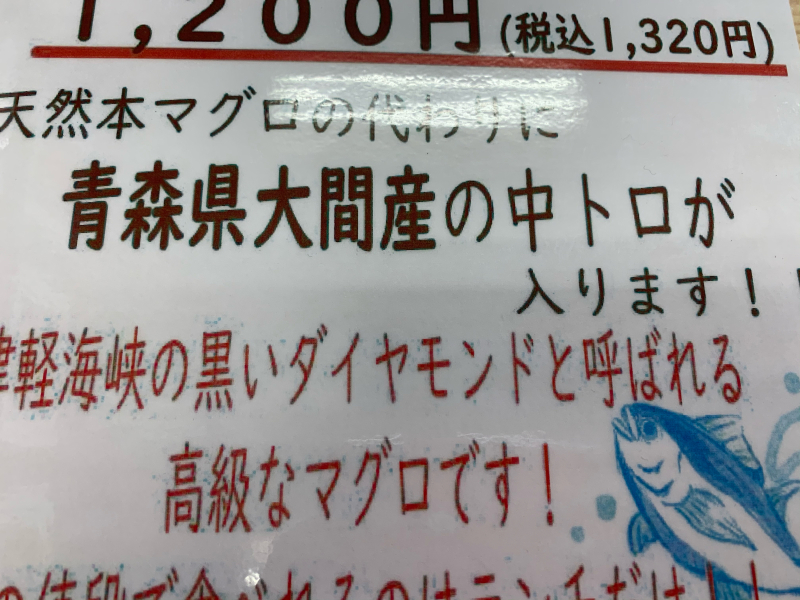 1,200円(税込1,320円)
天然本マグロの代わりに
青森県大間産の中トロが
入ります!!
津軽海峡の黒いダイヤモンドと呼ばれる
高級なマグロです!
の値段で食べれるのはランチだけ!!